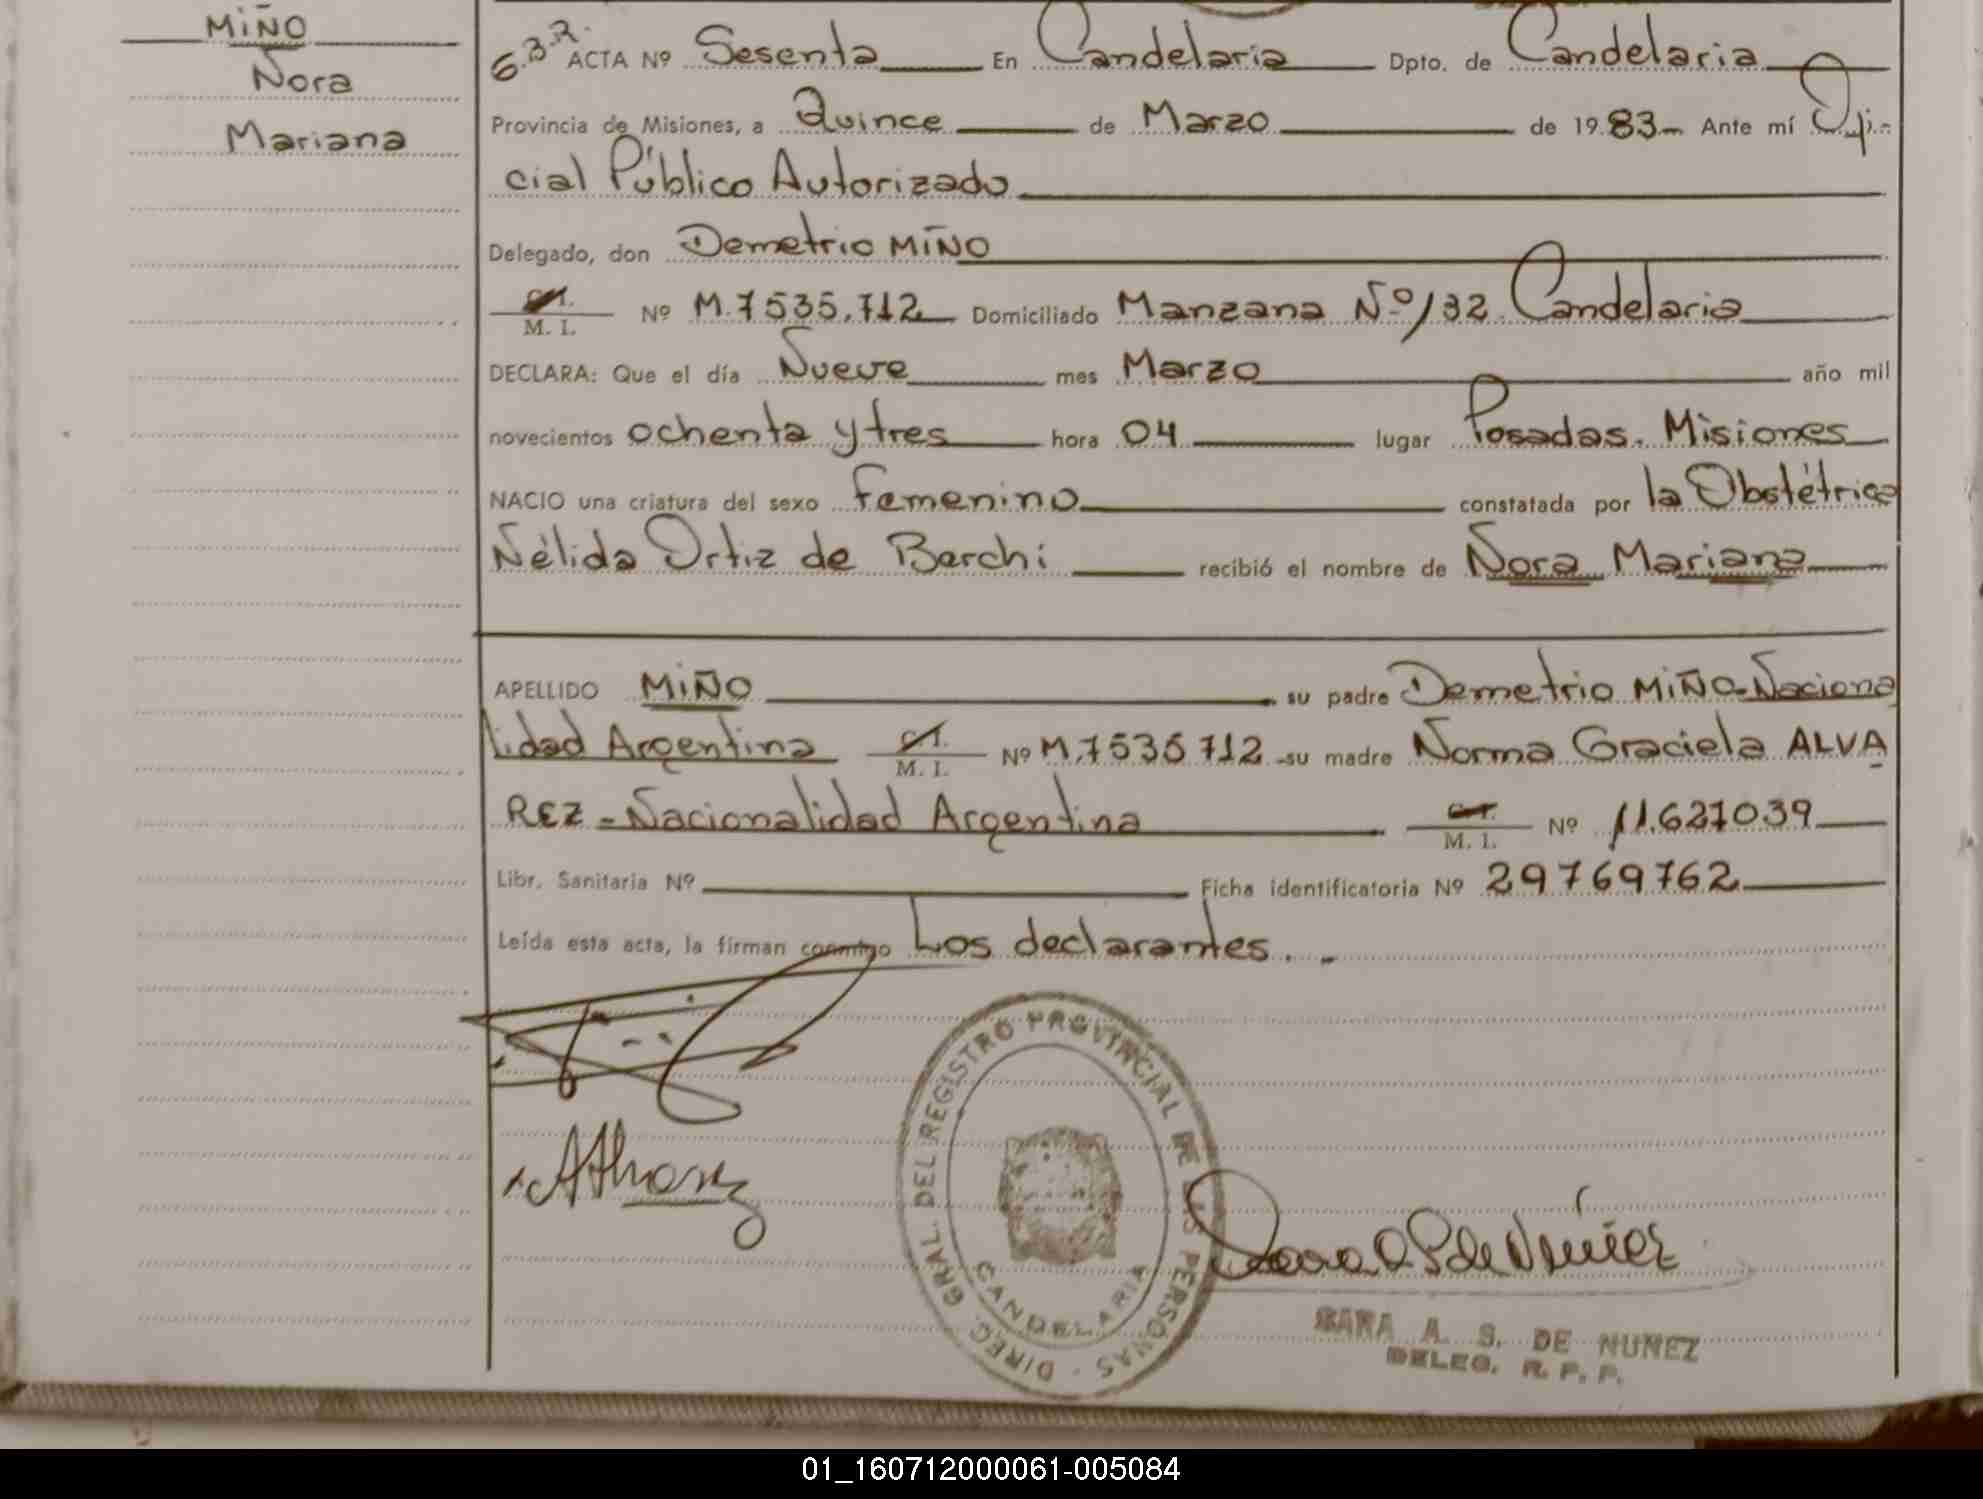 MIÑO
Nora
Mariana
6.3.2. ACTA Nº Sesenta En Candelaria Dpto. de Candelaria
Provincia de Misiones, a Quince de Marzo de 1983 Ante mí Ofi-
cial Público Autorizado
Delegado, don Demetrio MIÑO
C. I.
M. I. Nº M.7535.712 Domiciliado Manzana Nº/32 Candelaria
DECLARA: Que el día Nueve mes Marzo año mil
novecientos ochenta y tres hora 04 lugar Posadas. Misiones
NACIO una criatura del sexo Femenino constatada por la Obstétrica
Nélida Ortiz de Barchi recibió el nombre de Nora Mariana
APELLIDO MIÑO su padre Demetrio MIÑO-Naciona
lidad Argentina C. I. M. I. Nº M.7535712 su madre Norma Graciela ALVA
REZ-Nacionalidad Argentina C. I. M. I. Nº 11.627039
Libr. Sanitaria Nº Ficha identificatoria Nº 29769762
Leída esta acta, la firman conmigo Los declarantes. -
DIREC. GRAL. DEL REGISTRO PROVINCIAL DE LAS PERSONAS
CANDELARIA
Sara A S de Núñez
SARA A. S. DE NUNEZ
DELEG. R. P. P.
01_160712000061-005084